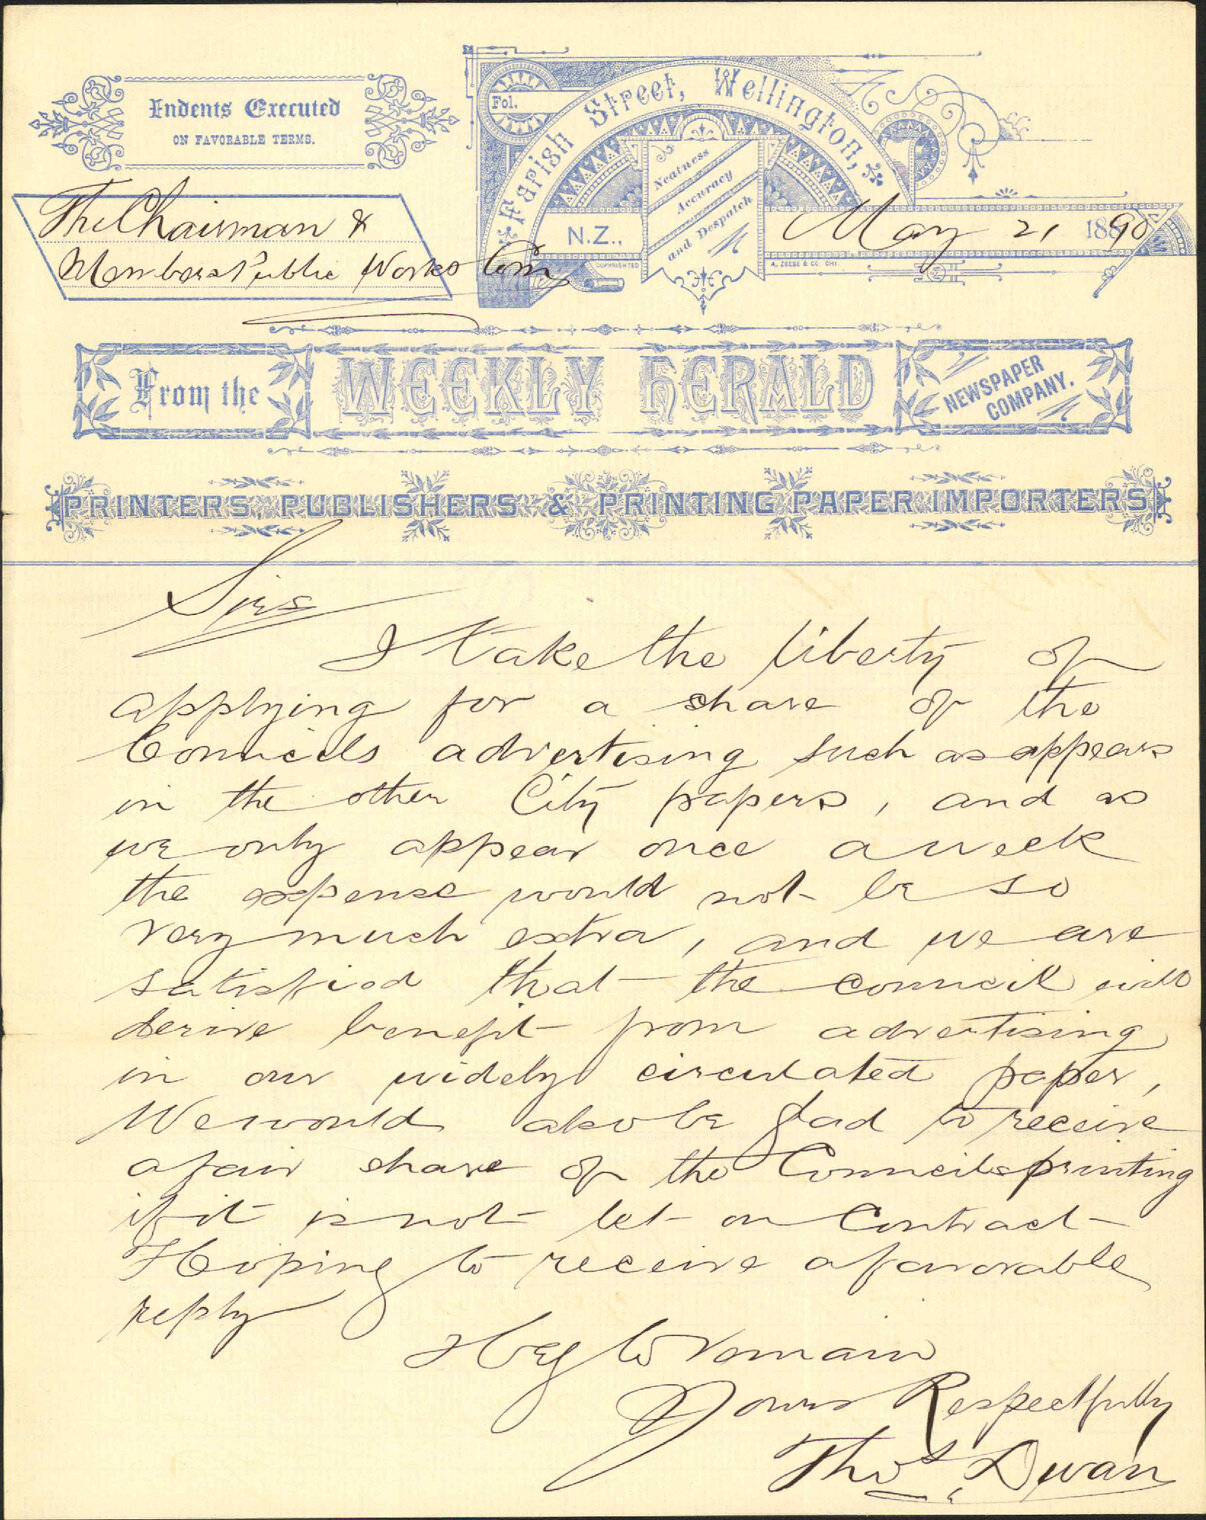 Indents Executed
ON FAVORABLE TERMS.
Fol.
Farish Street, Wellington,
Neatness
Accuracy
and Despatch
N.Z.,
May 21 1890
COPYRIGHTED
A. ZEESE & CO. CHI.
The Chairman &
Members Public Works Com
From the
WEEKLY HERALD
NEWSPAPER
COMPANY.
PRINTERS, PUBLISHERS & PRINTING PAPER IMPORTERS
Sirs
I take the liberty of
applying for a share of the
Councils advertising such as appears
in the other City papers, and as
we only appear once a week
the expense would not be so
very much extra, and we are
satisfied that the council will
derive benefit from advertising
in our widely circulated paper,
We would also be glad to receive
a fair share of the Councils printing
if it is not let on Contract
Hoping to receive a favorable
reply
I beg to remain
Yours Respectfully
Thos. Dwan